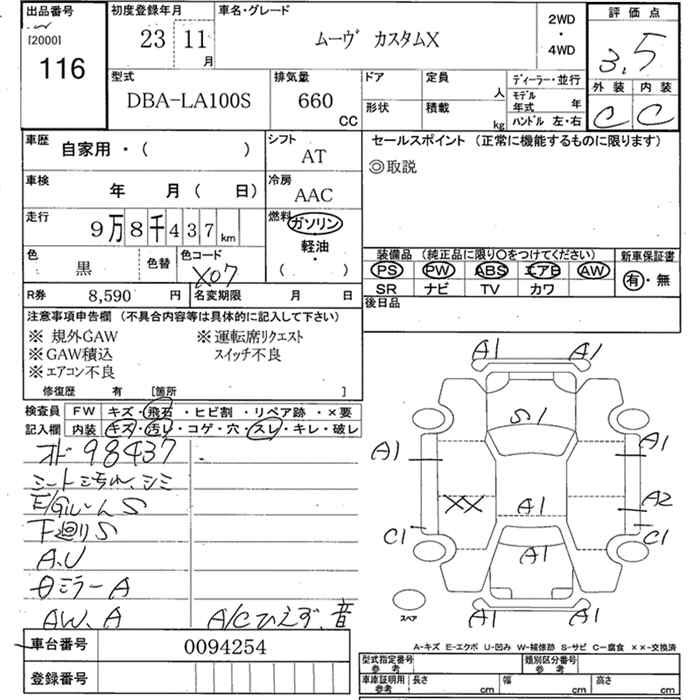 出品番号 初度登録年月 車名・グレード 2WD・4WD 評価点
[2000] 116 23 11月 ムーヴ カスタムX 3.5
型式 排気量 ドア 定員 人 ディーラー・並行 外装 内装
DBA-LA100S 660 CC 形状 積載 kg モデル年式 年 C C
ハンドル 左・右
車歴 自家用・( ) シフト AT セールスポイント (正常に機能するものに限ります)
◎取説
車検 年 月 ( 日) 冷房 AAC
走行 9万8千437km 燃料 ガソリン
軽油・
( ・ )
色 黒 色替 色コード X07 装備品 (純正品に限り○をつけてください) 新車保証書
PS PW ABS エアB AW 有・無
SR ナビ TV カワ
R券 8,590 円 名変期限 月 日 後日品
注意事項申告欄 (不具合内容等は具体的に記入して下さい)
※ 規外GAW ※運転席リクエスト
※GAW積込 スイッチ不良
※エアコン不良
修復歴 有 [箇所 ]
検査員 FW キズ・飛石・ヒビ割・リペア跡・×要
記入欄 内装 キズ・汚レ・コゲ・穴・スレ・キレ・破レ
オド 98437
シートこちれ、シミ
E/GルームS
下廻りS
A.U
日ミラーA
AW、A A/Cひえず、音
A1 A1
S1
A1 A1
XX A1 A2
C1 C1
A1
スペア A1 A1
A-キズ E-エクボ U-凹み W-補修跡 S-サビ C-腐食 ××-交換済
車台番号 0094254
登録番号
型式指定番号 参考 類別区分番号 参考
車庫証明用 参考 長さ cm 幅 cm 高さ cm